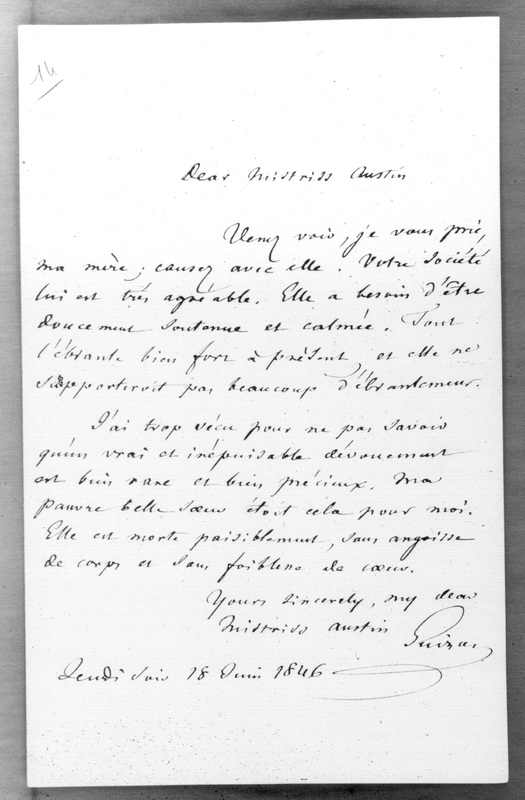 14
Dear Mistriss Austin
Venez voir, je vous prie,
ma mère; causez avec elle. Votre société
lui est très agréable. Elle a besoin d'être
doucement soutenue et calmée. Tout
l'ébranle bien fort à présent, et elle ne
supporteroit pas beaucoup d'ébranlemens.
J'ai trop vécu pour ne pas savoir
qu'un vrai et inépuisable dévouement
est bien rare et bien précieux. Ma
pauvre belle sœur étoit cela pour moi.
Elle est morte paisiblement, sans angoisse
de corps et sans foiblesse de cœur.
Yours sincerely, my dear
Mistriss Austin
Guizot
Jeudi soir 18 Juin 1846